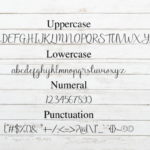 Uppercase
ABCDEFGHIJKLMNOPQRSTUVWXYZ
Lowercase
abcdefghijklmnopqrstuvwxyz
Numeral
1234567890
Punctuation